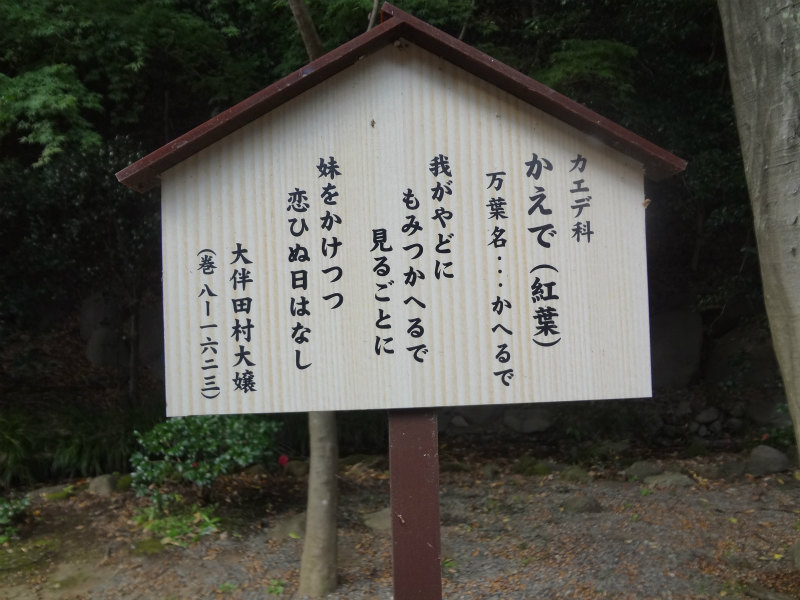 カエデ科
かえで（紅葉）
万葉名・・・かへるで
我がやどに
もみつかへるで
見るごとに
妹をかけつつ
恋ひぬ日はなし
大伴田村大嬢
（巻八ー一六二三）